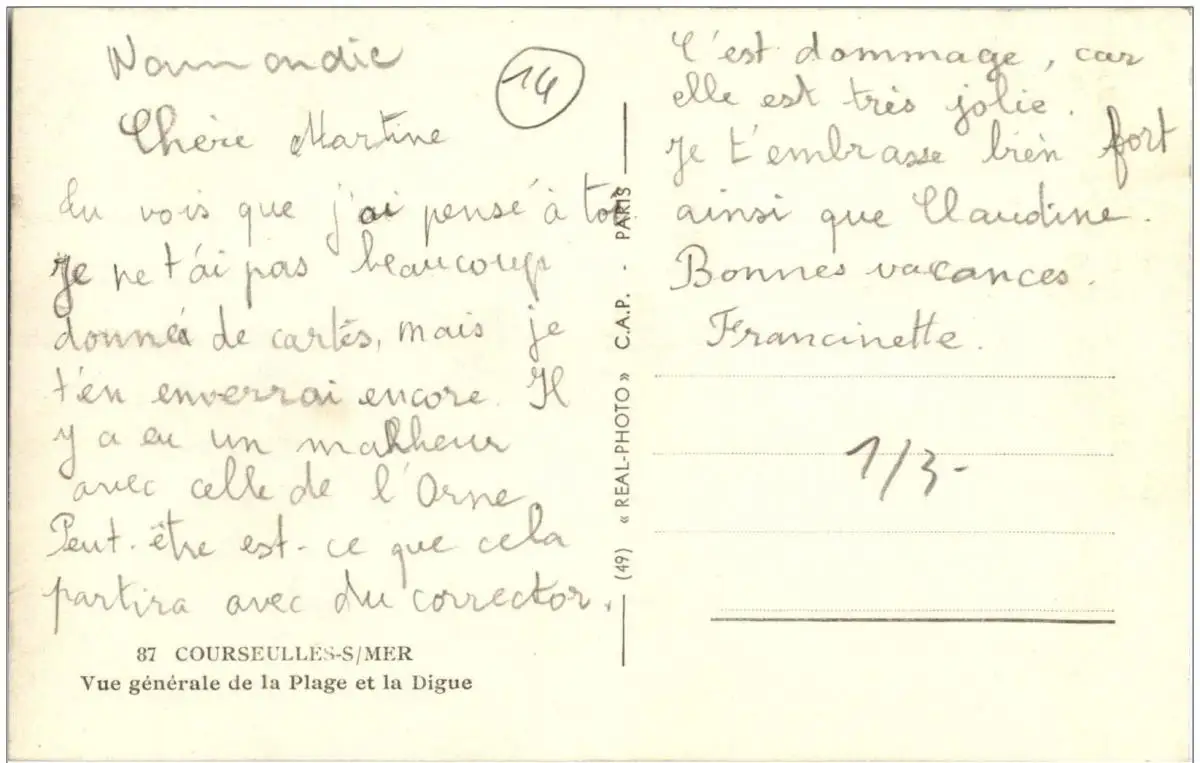 Normandie
14
Chère Martine
tu vois que j'ai pensé à toi
Je ne t'ai pas beaucoup
donné de cartes, mais je
t'en enverrai encore. Il
y a eu un malheur
avec celle de l'Orne
Peut-être est-ce que cela
partira avec du corrector.
87 COURSEULLES-S/MER
Vue générale de la Plage et la Digue
(49) « REAL-PHOTO » C.A.P. - PARIS
C'est dommage, car
elle est très jolie.
Je t'embrasse bien fort
ainsi que Claudine.
Bonnes vacances.
Francinette.
1/3-